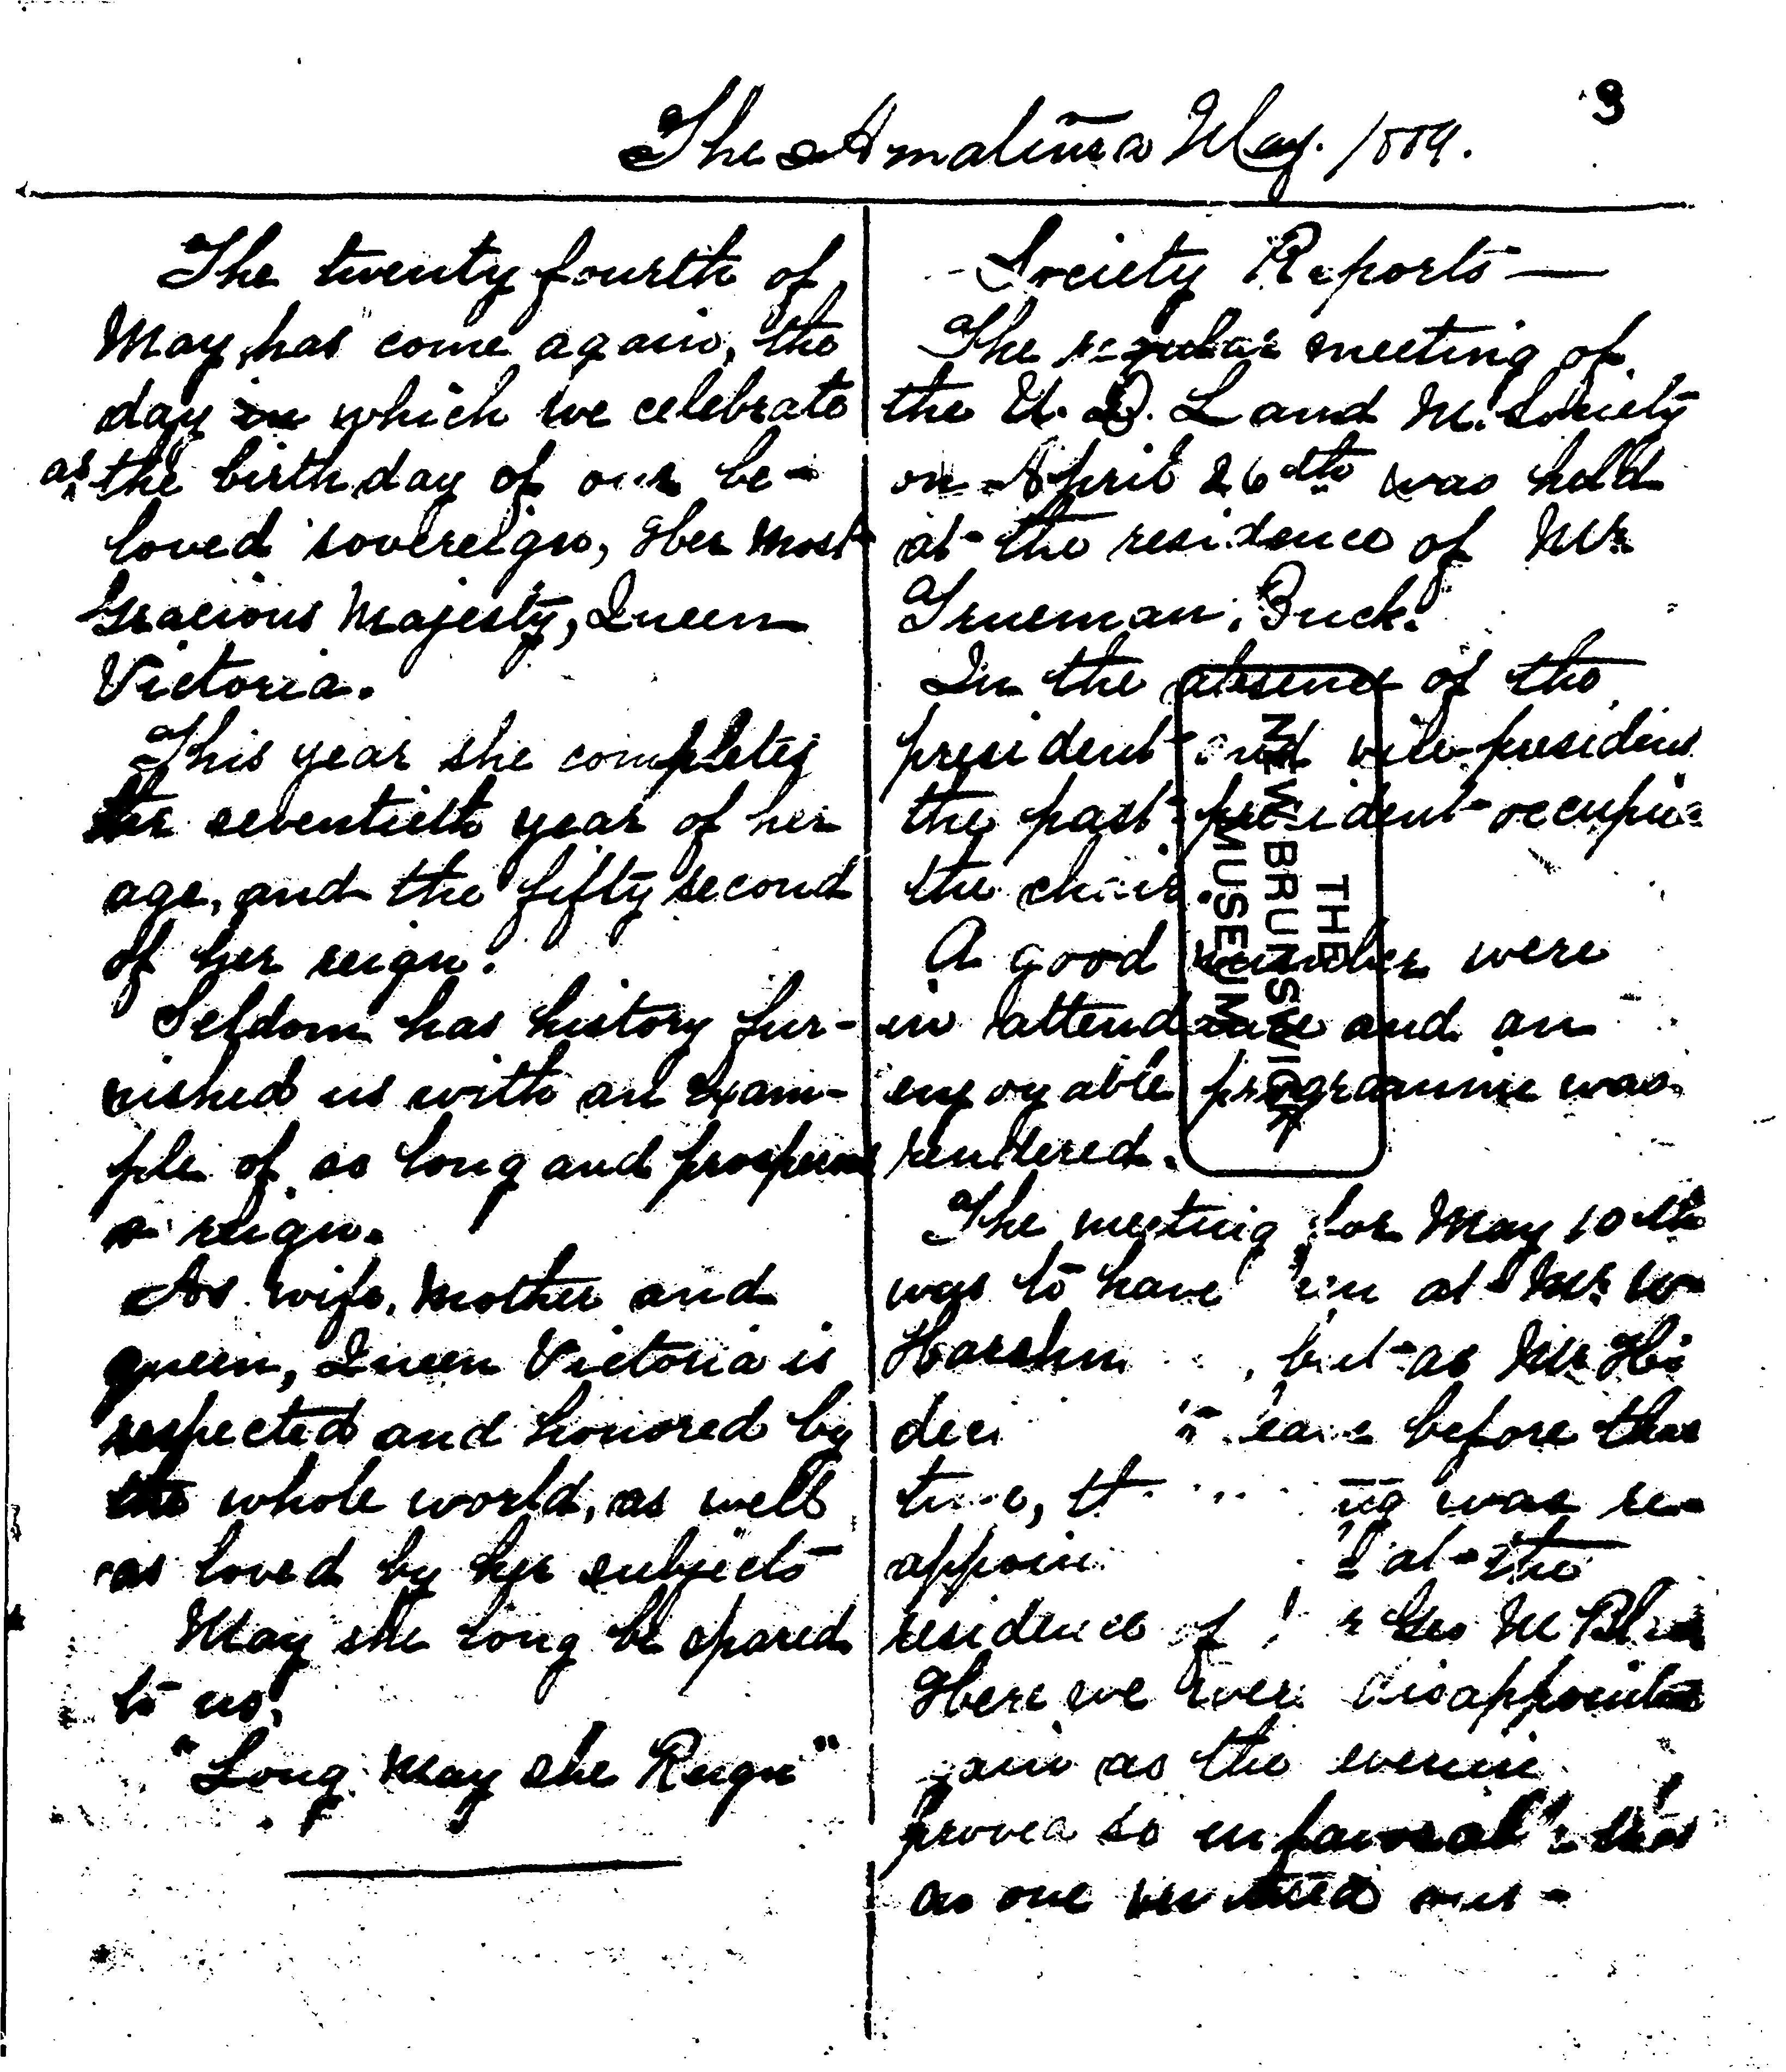 The Amateur May. 1889.
3
The twenty fourth of
May, has come again, the
day which we celebrate
as the birthday of our be-
loved sovereign, Her Most
Gracious Majesty, Queen
Victoria.
This year she completes
the seventieth year of her
age, and the fifty second
of her reign.
Seldom has history fur-
nished us with an exam-
ple of so long and prosperous
a reign.
As wife, mother and
queen, Queen Victoria is
respected and honored by
the whole world, as well
as loved by her subjects
May she long be spared
to us.
"Long May she Reign"
Society Reports —
The regular meeting of
the U. D. L and M. Society
on April 26th was held
at the residence of Mr.
Trueman Buck.
In the absence of the
president and vice-president
the past president occupied
the chair.
A good number were
in attendance and an
enjoyable programme was
rendered.
The meeting for May 10th
was to have at Mr. W
but as Mr. H
before that
was re-
at the
residence of Geo McBl
Here we were disappointed
as the evenin
proved so unfavorable that
no one ventured out-
THE
NEW BRUNSWICK
MUSEUM